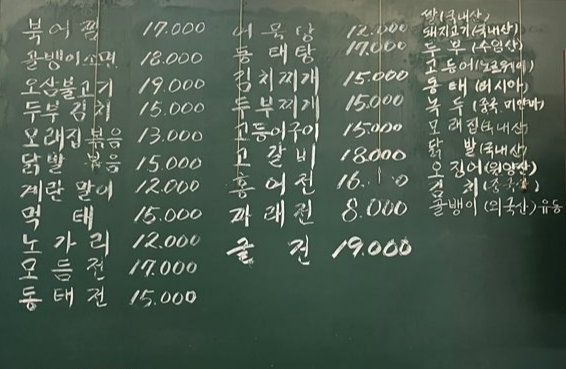 북어찜 17.000
골뱅이소면 18.000
오삼불고기 19.000
두부김치 15.000
모래집볶음 13.000
닭발볶음 15.000
계란말이 12.000
먹태 15.000
노가리 12.000
모듬전 17.000
동태전 15.000
어묵탕 12.000
동태탕 17.000
김치찌개 15.000
두부찌개 15.000
고등어구이 15.000
고갈비 18.000
홍어전
파래전 8.000
굴전 19.000
쌀(국내산)
돼지고기(국내산)
두부(수입산)
고등어(노르웨이)
동태(러시아)
녹두(중국 미얀마)
모래집(국내산)
닭발(국내산)
오징어(원양산)
김치
골뱅이(외국산)유동